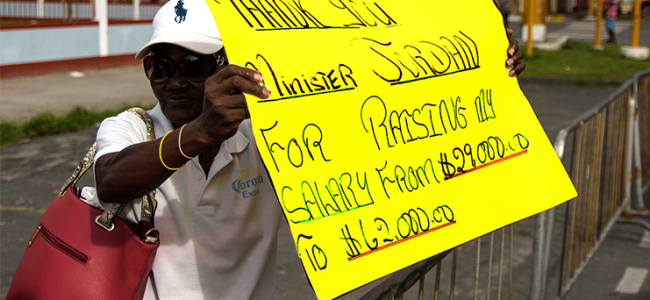 THANK YOU
MINISTER JORDAN
FOR RAISING MY
SALARY FROM $29000.00
TO $62,000.00
Corona
Extra